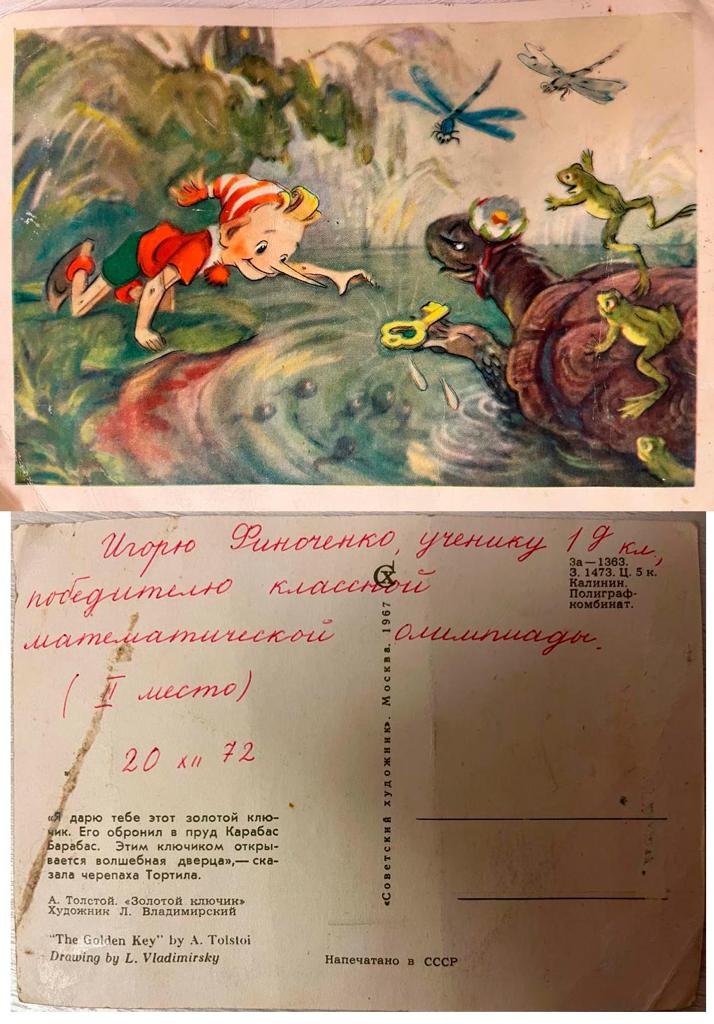 Игорю Финоченко, ученику 1 д кл,
победителю классной
математической олимпиады.
( II место)
20 XII 72
За—1363.
З. 1473. Ц. 5 к.
Калинин.
Полиграф-
комбинат.
«Советский художник». Москва. 1967
СХ
«Я дарю тебе этот золотой клю-
чик. Его обронил в пруд Карабас
Барабас. Этим ключиком откры-
вается волшебная дверца»,— ска-
зала черепаха Тортила.
А. Толстой. «Золотой ключик»
Художник Л. Владимирский
"The Golden Key" by A. Tolstoi
Drawing by L. Vladimirsky
Напечатано в СССР